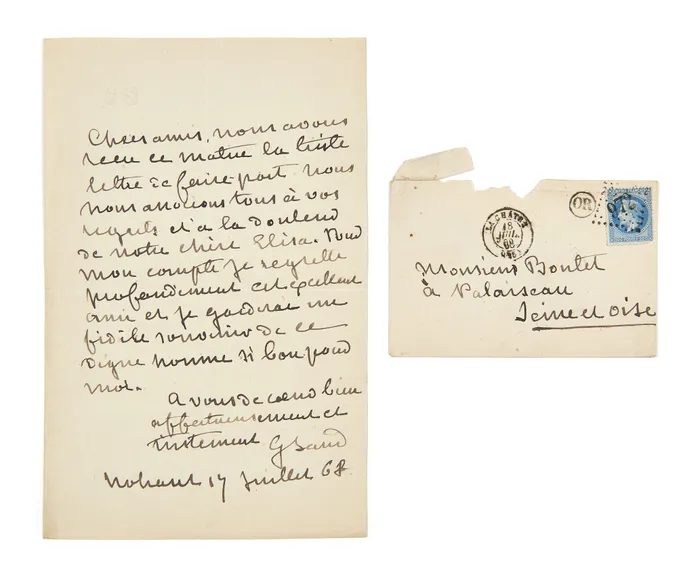 Chers amis, nous avons
recu ce matin la triste
lettre de faire-part. Nous
nous associons tous à vos
regrets et a la douleur
de notre chère Elisa. Pour
mon compte je regrette
profondement cet excellent
ami et je garderai un
fidèle souvenir de ce
digne homme si bon pour
moi.
A vous de coeur bien
affectueusement et
tristement G Sand
Nohant 17 juillet 68
LA CHATRE
18
JUIL.
68
OR
Monsieur Boutet
à Palaiseau
Seine et oise